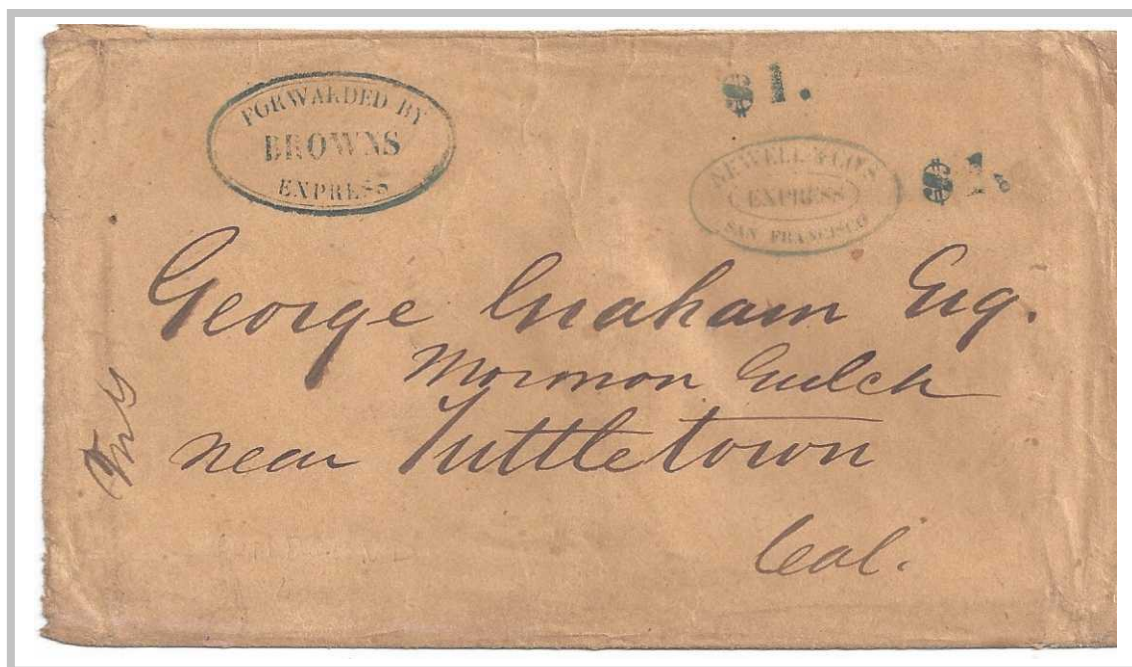 FORWARDED BY
BROWNS
EXPRESS
$1.
NEWELL & CO'S
EXPRESS
SAN FRANCISCO
$1.
George Graham Esq.
Mormon Gulch
near Tuttletown
Cal.